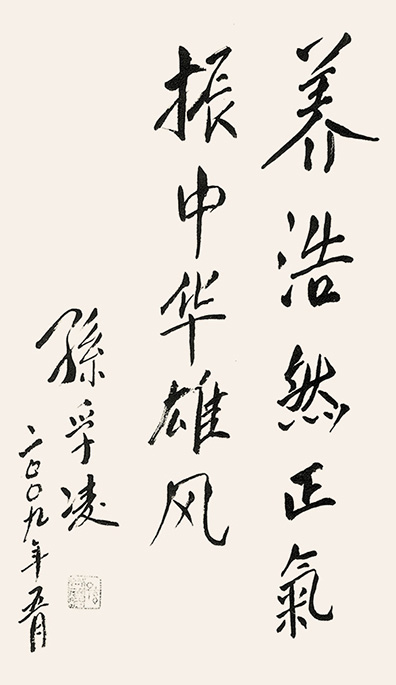 养浩然正氣
振中华雄风
孫孚凌
二〇〇九年五月